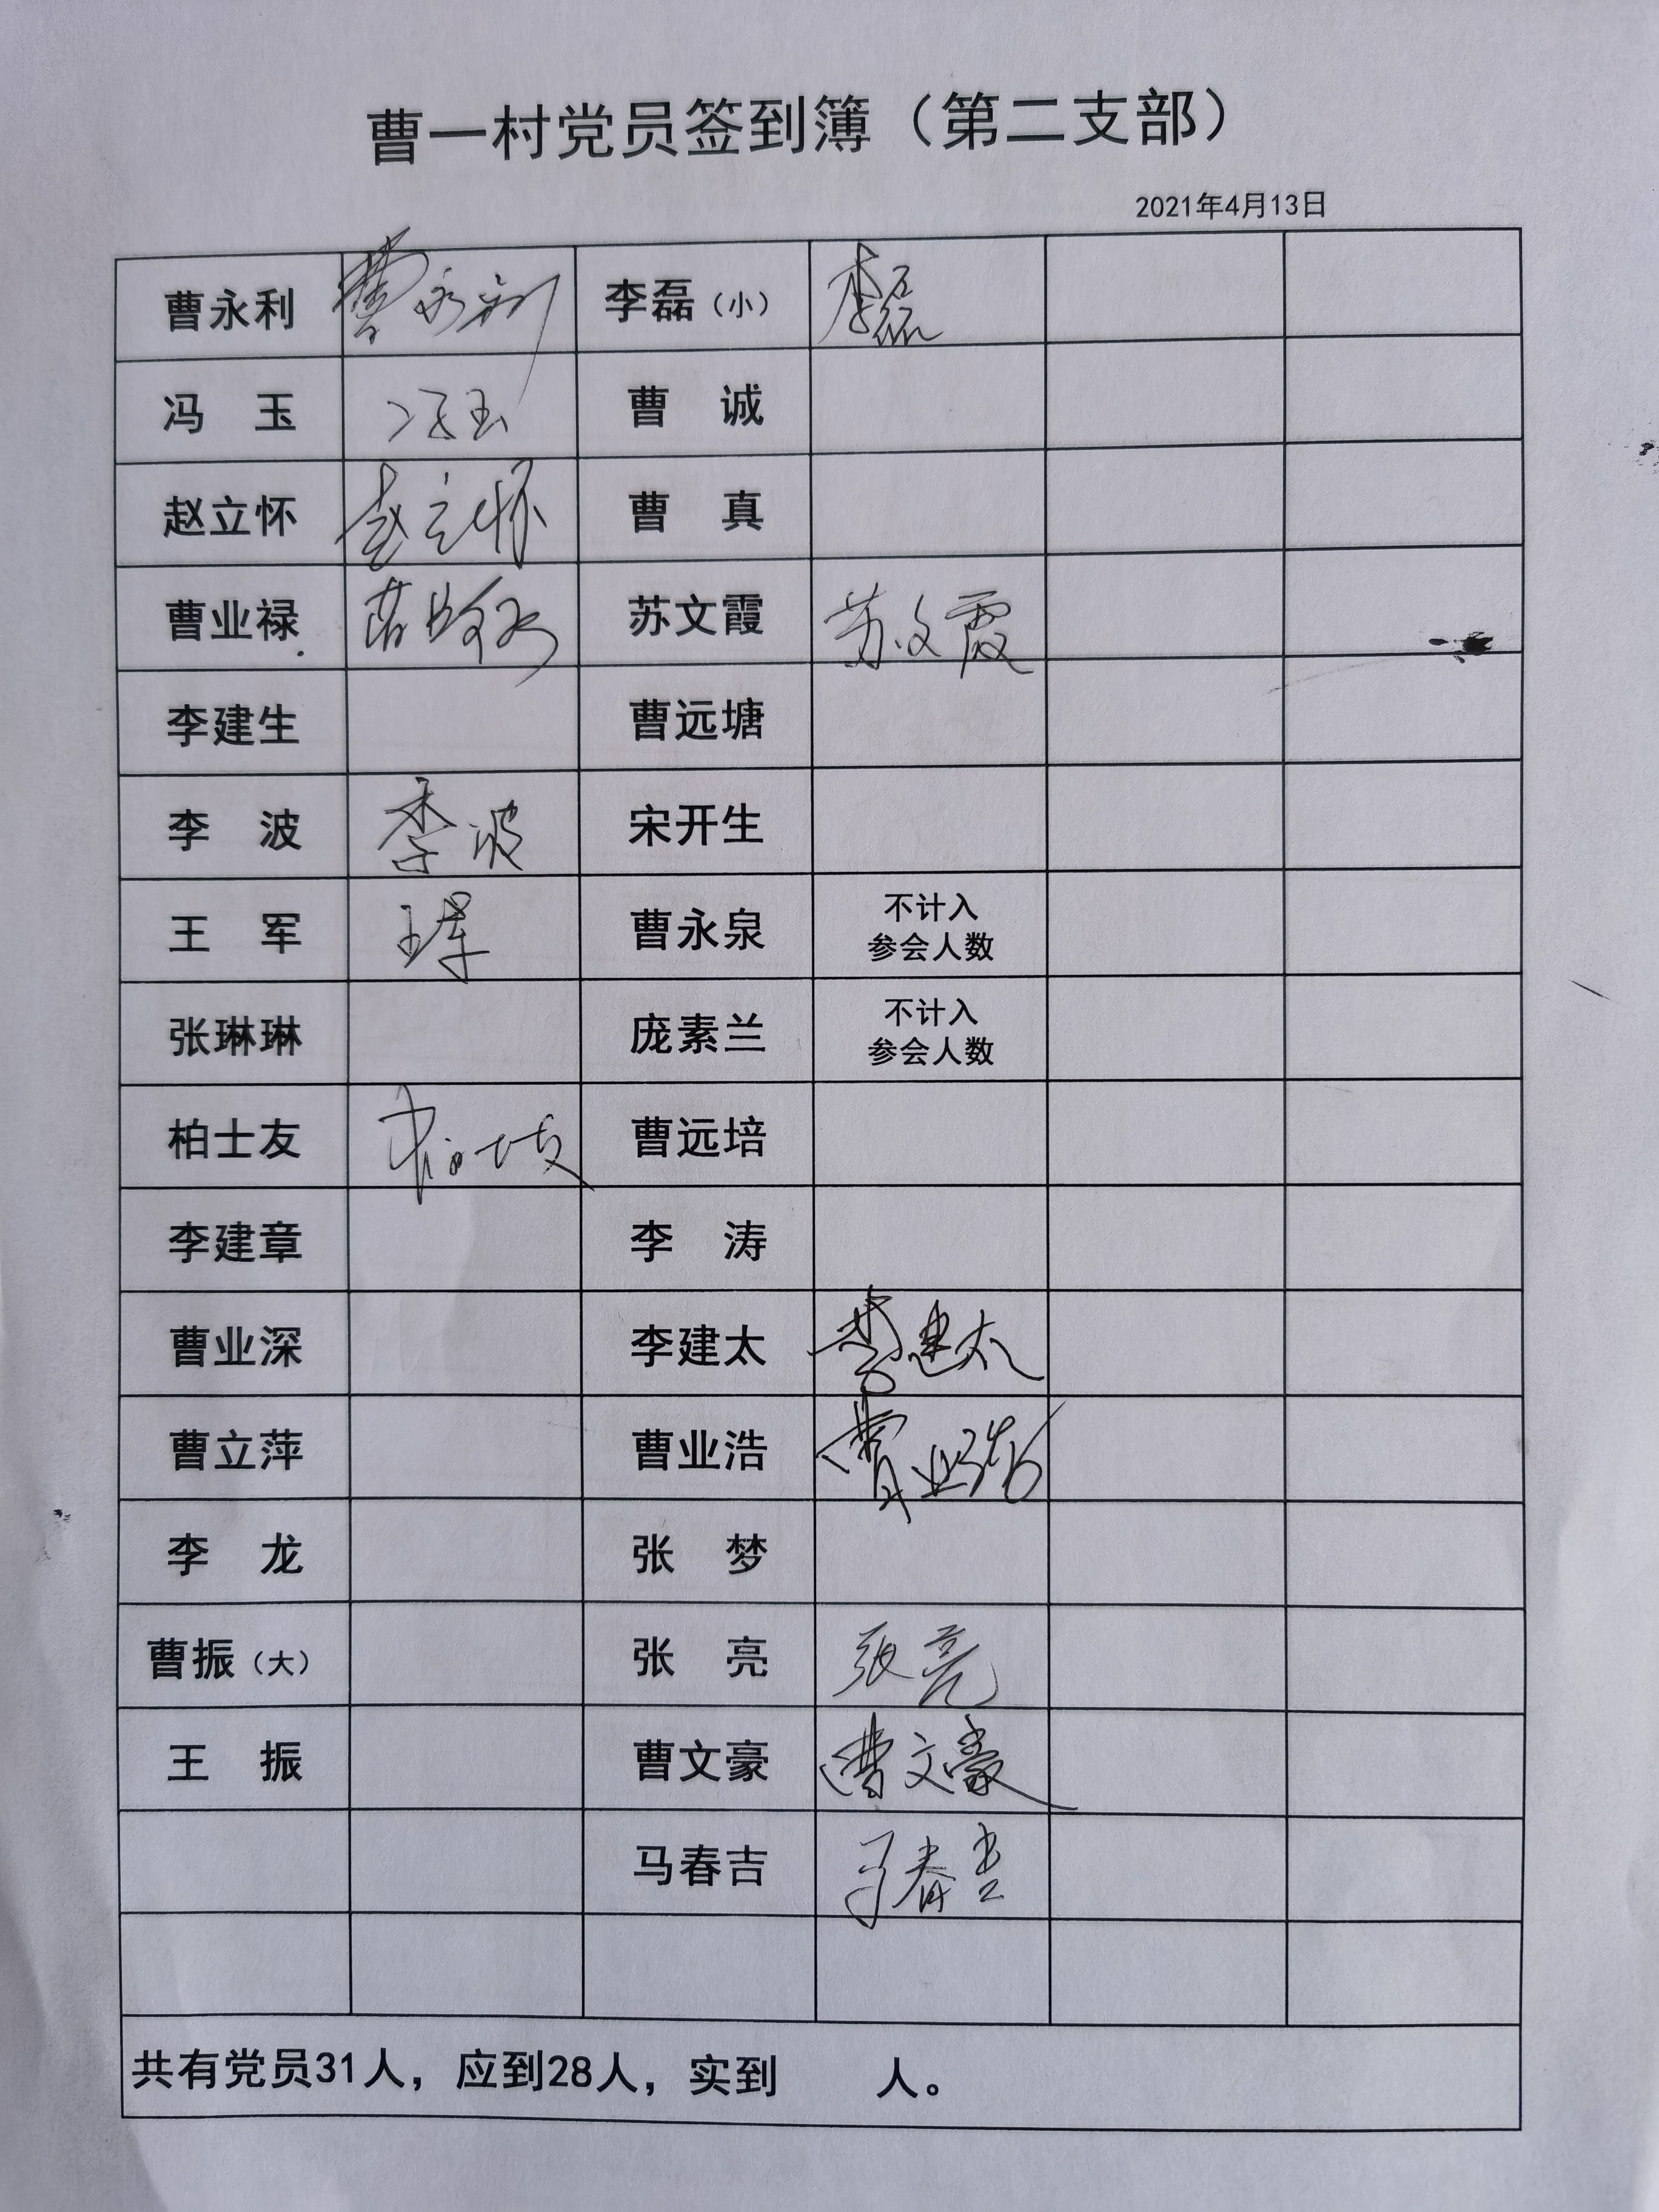 曹一村党员签到簿（第二支部）
2021年4月13日
曹永利 曹永利 李磊（小） 李磊
冯 玉 冯玉 曹 诚
赵立怀 赵立怀 曹 真
曹业禄 苏文霞 苏文霞
李建生 曹远塘
李 波 李波 宋开生
王 军 王军 曹永泉 不计入
参会人数
张琳琳 庞素兰 不计入
参会人数
柏士友 柏士友 曹远培
李建章 李 涛
曹业深 李建太 李建太
曹立萍 曹业浩 曹业浩
李 龙 张 梦
曹振（大） 张 亮 张亮
王 振 曹文豪 曹文豪
马春吉 马春吉
共有党员31人，应到28人，实到 人。